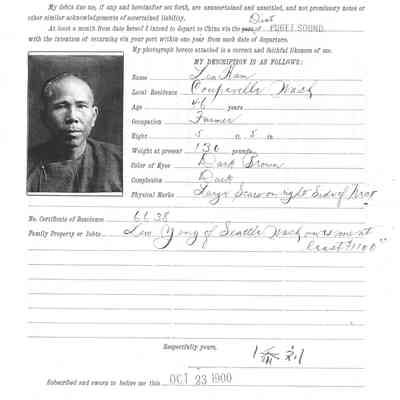 My debts due me, if any and hereinafter set forth, are unascertained and unsettled, and not promissory notes or
other similar acknowledgements of ascertained liability.
Dist
At least a month from date hereof I intend to depart to China via the port of PUGET SOUND,
with the intention of returning via your port within one year from such date of departure.
My photograph hereto attached is a correct and faithful likeness of me.
MY DESCRIPTION IS AS FOLLOWS:
Name Lew Kam
Local Residence Coupeville Wash
Age 46 years
Occupation Farmer
Hight 5 ft. 5 in.
Weight at present 130 pounds
Color of Eyes Dark Brown
Complexion Dark
Physical Marks Large Scar on right Side of
No. Certificate of Residence 6638
Family Property or Debts Lew Yong of Seattle Wash owes me at
least $1100"
Respectfully yours,
Subscribed and sworn to before me this OCT 23 1900